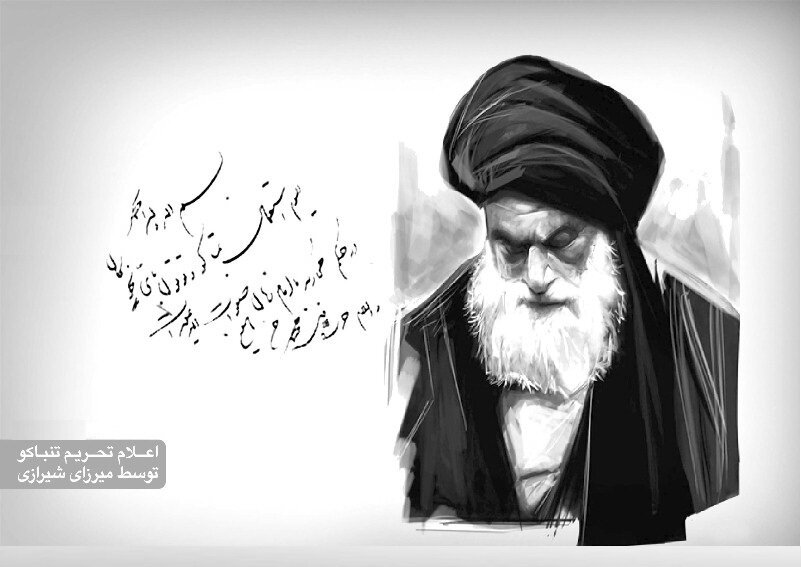 بسم الله الرحمن الرحیم
الیوم استعمال تنباکو و توتون بای نحو کان
در حکم محاربه با امام زمان صلوات الله علیه است
اعلام تحریم تنباکو
توسط میرزای شیرازی